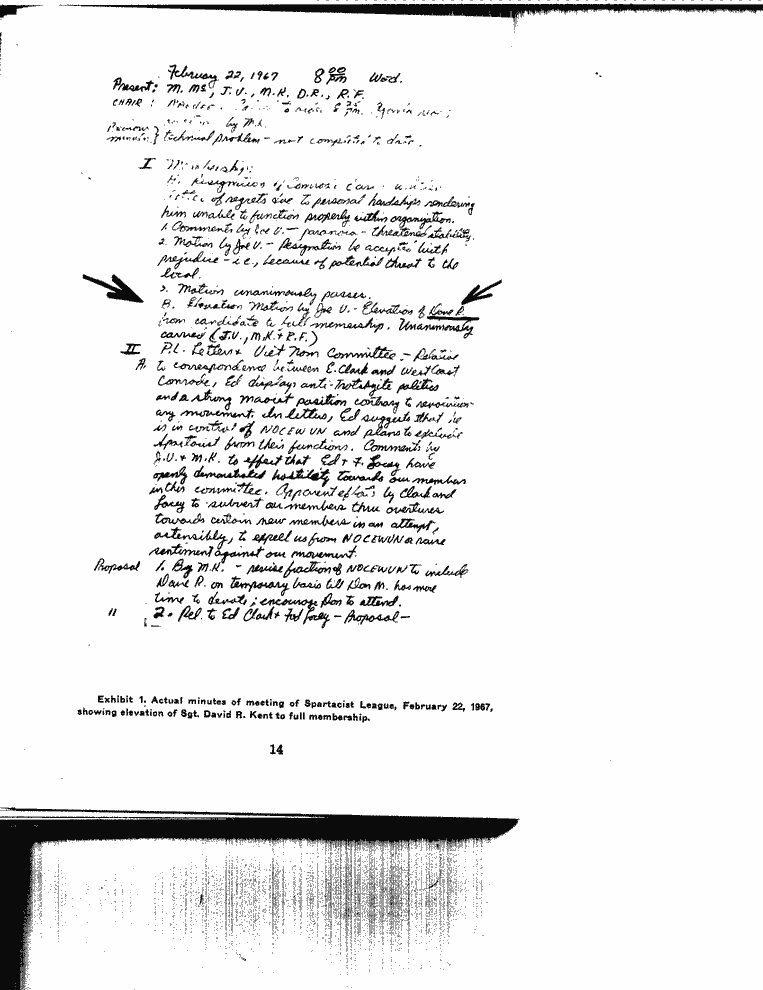 February 22, 1967 8 00 pm Wed.
Present: M. Ms, J.V., M.K. D.R., R.F.
CHAIR :
by M.K.
minutes } technical problem - not completed to date.
I Membership:
A. Resignation of Comrade
of regrets due to personal hardships rendering
him unable to function properly within organization.
1. Comments by Joe V. — paranoia - threatened stability.
2. Motion by Joe V. - Resignation be accepted with
prejudice - i.e., because of potential threat to the
local.
3. Motion unanimously passes.
B. Elevation Motion by Joe V. - Elevation of Dave R.
from candidate to full membership. Unanimously
carried (J.V., M.K. + R.F.)
II P.L. Letters + Viet Nam Committee - Relative
A. to correspondence between E. Clark and West Coast
Comrade, Ed displays anti-Trotskyite politics
and a strong maoist position contrary to revolution-
ary movement. In letters, Ed suggests that he
is in control of NOCEWVN and plans to exclude
Spartacist from their functions. Comments by
J.V. + M.K. to effect that Ed + F. Lacey have
openly demonstrated hostility towards our members
in this committee. Apparent efforts by Clark and
Lacey to subvert our members thru overtures
towards certain new members in an attempt,
ostensibly, to expell us from NOCEWVN or raise
sentiment against our movement.
Proposal 1. By M.K. - revise fraction of NOCEWVN to include
Dave R. on temporary basis till Don M. has more
time to devote; encourage Don to attend.
" 2. Rel. to Ed Clark + Fred Lacey - Proposal -
Exhibit 1. Actual minutes of meeting of Spartacist League, February 22, 1967,
showing elevation of Sgt. David R. Kent to full membership.
14